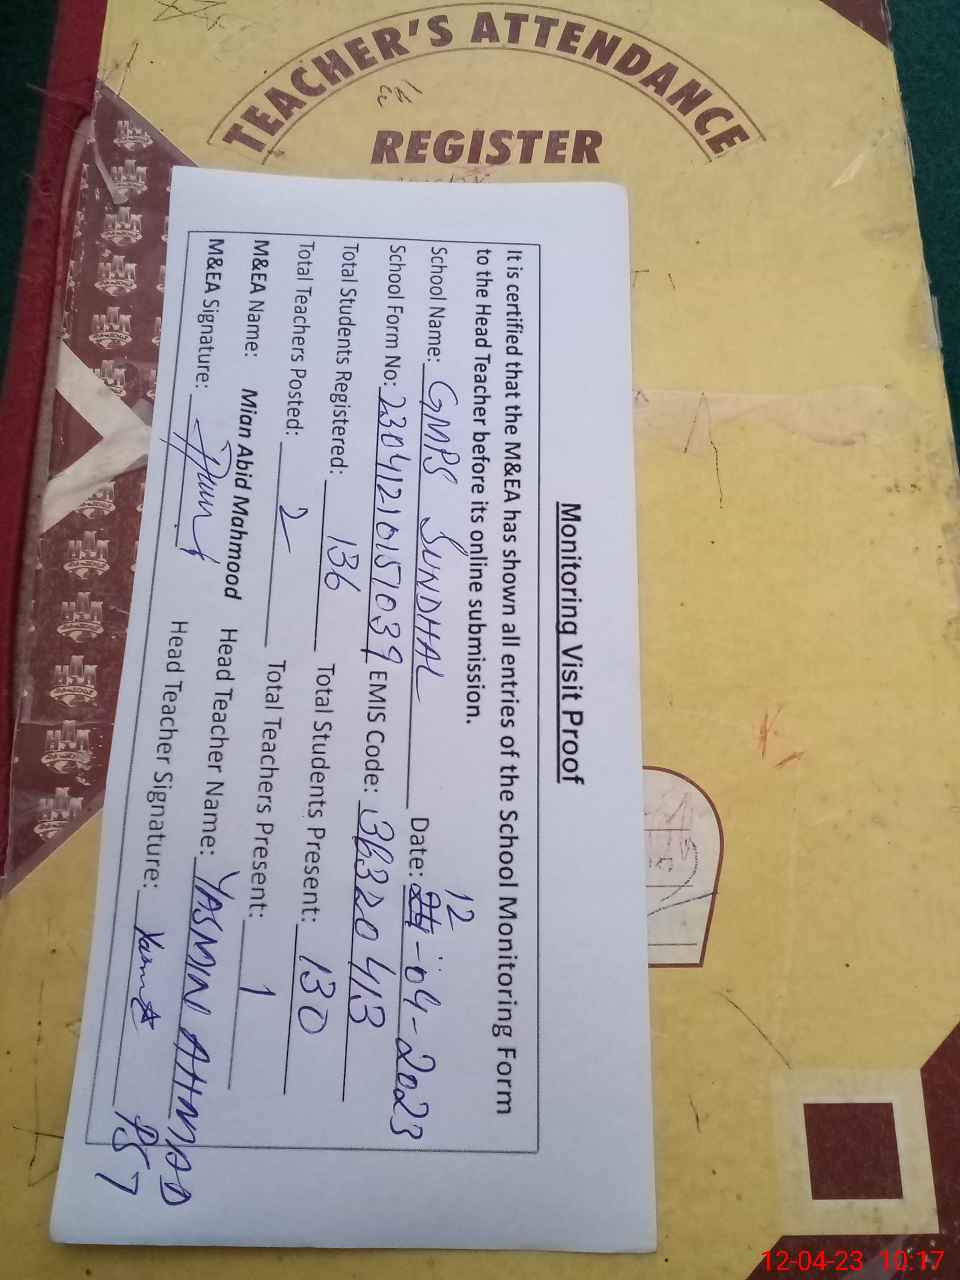 TEACHER'S ATTENDANCE
REGISTER
Monitoring Visit Proof
It is certified that the M&EA has shown all entries of the School Monitoring Form
to the Head Teacher before its online submission.
School Name: GMPS SUNDHAL Date: 12-04-2023
School Form No: 23041210151039 EMIS Code: 36320413
Total Students Registered: 136 Total Students Present: 130
Total Teachers Posted: 2 Total Teachers Present: 1
M&EA Name: Mian Abid Mahmood Head Teacher Name: YASMIN AHMAD
M&EA Signature: Head Teacher Signature:
12-04-23 10:17